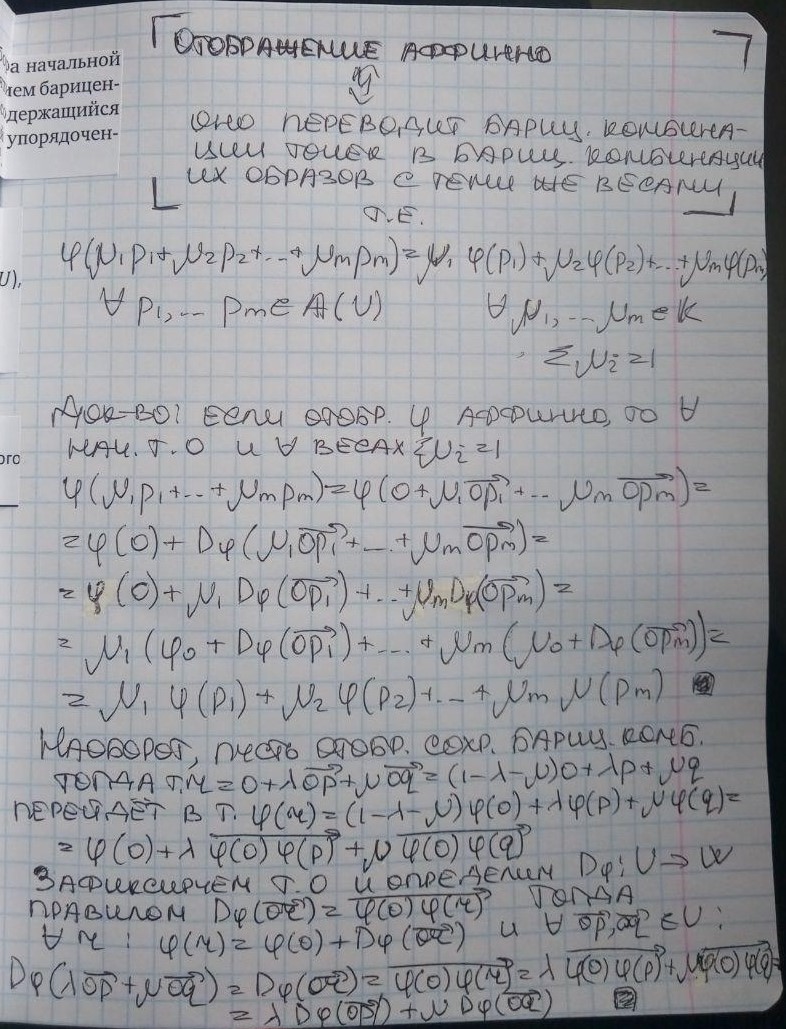 ра начальной
ием барицен-
держащийся
упорядочен-
U),
ого
ОТОБРАЖЕНИЕ АФФИННО
⇕
ОНО ПЕРЕВОДИТ БАРИЦ. КОМБИНА-
ЦИИ ТОЧЕК В БАРИЦ. КОМБИНАЦИИ
ИХ ОБРАЗОВ С ТЕМИ ЖЕ ВЕСАМИ,
Т.Е.
φ(μ₁p₁+μ₂p₂+...+μₘpₘ)=μ₁ φ(p₁)+μ₂φ(p₂)+...+μₘφ(pₘ)
∀ p₁,... pₘ∈𝔸(U) ∀ μ₁,...μₘ∈K
Σμᵢ=1
ДОК-ВО: ЕСЛИ ОТОБР. φ АФФИННО, ТО ∀
НАЧ. Т. О И ∀ ВЕСАХ Σμᵢ=1
φ(μ₁p₁+...+μₘpₘ)=φ(0+μ₁op₁→+... μₘ opₘ→)=
=φ(0)+Dφ(μ₁op₁→+...+μₘopₘ→)=
=φ(0)+μ₁Dφ(op₁→)+...+μₘDφ(opₘ→)=
= μ₁(φ₀+Dφ(op₁→)+...+μₘ(μ₀+Dφ(opₘ→))=
= μ₁ φ(p₁)+μ₂ φ(p₂)+...+μₘ μ(pₘ) ■
НАОБОРОТ, ПУСТЬ ОТОБР. СОХР. БАРИЦ. КОМБ.
ТОГДА Т.r=0+λop→+μoq→=(1-λ-μ)0+λp+μq
ПЕРЕЙДЁТ В Т. φ(r)=(1-λ-μ)φ(0)+λφ(p)+μφ(q)=
=φ(0)+λ φ(0)φ(p)→+μ φ(0)φ(q)→
ЗАФИКСИРУЕМ Т.О И ОПРЕДЕЛИМ Dφ:U→W
ПРАВИЛОМ Dφ(or→)=φ(0)φ(r)→ ТОГДА
∀ r: φ(r)=φ(0)+Dφ(or→) И ∀ op→,oq→∈U:
Dφ(λop→+μoq→)=Dφ(or→)=φ(0)φ(r)→=λ φ(0)φ(p)→+μφ(0)φ(q)→=
= λDφ(op→)+μDφ(oq→) ■